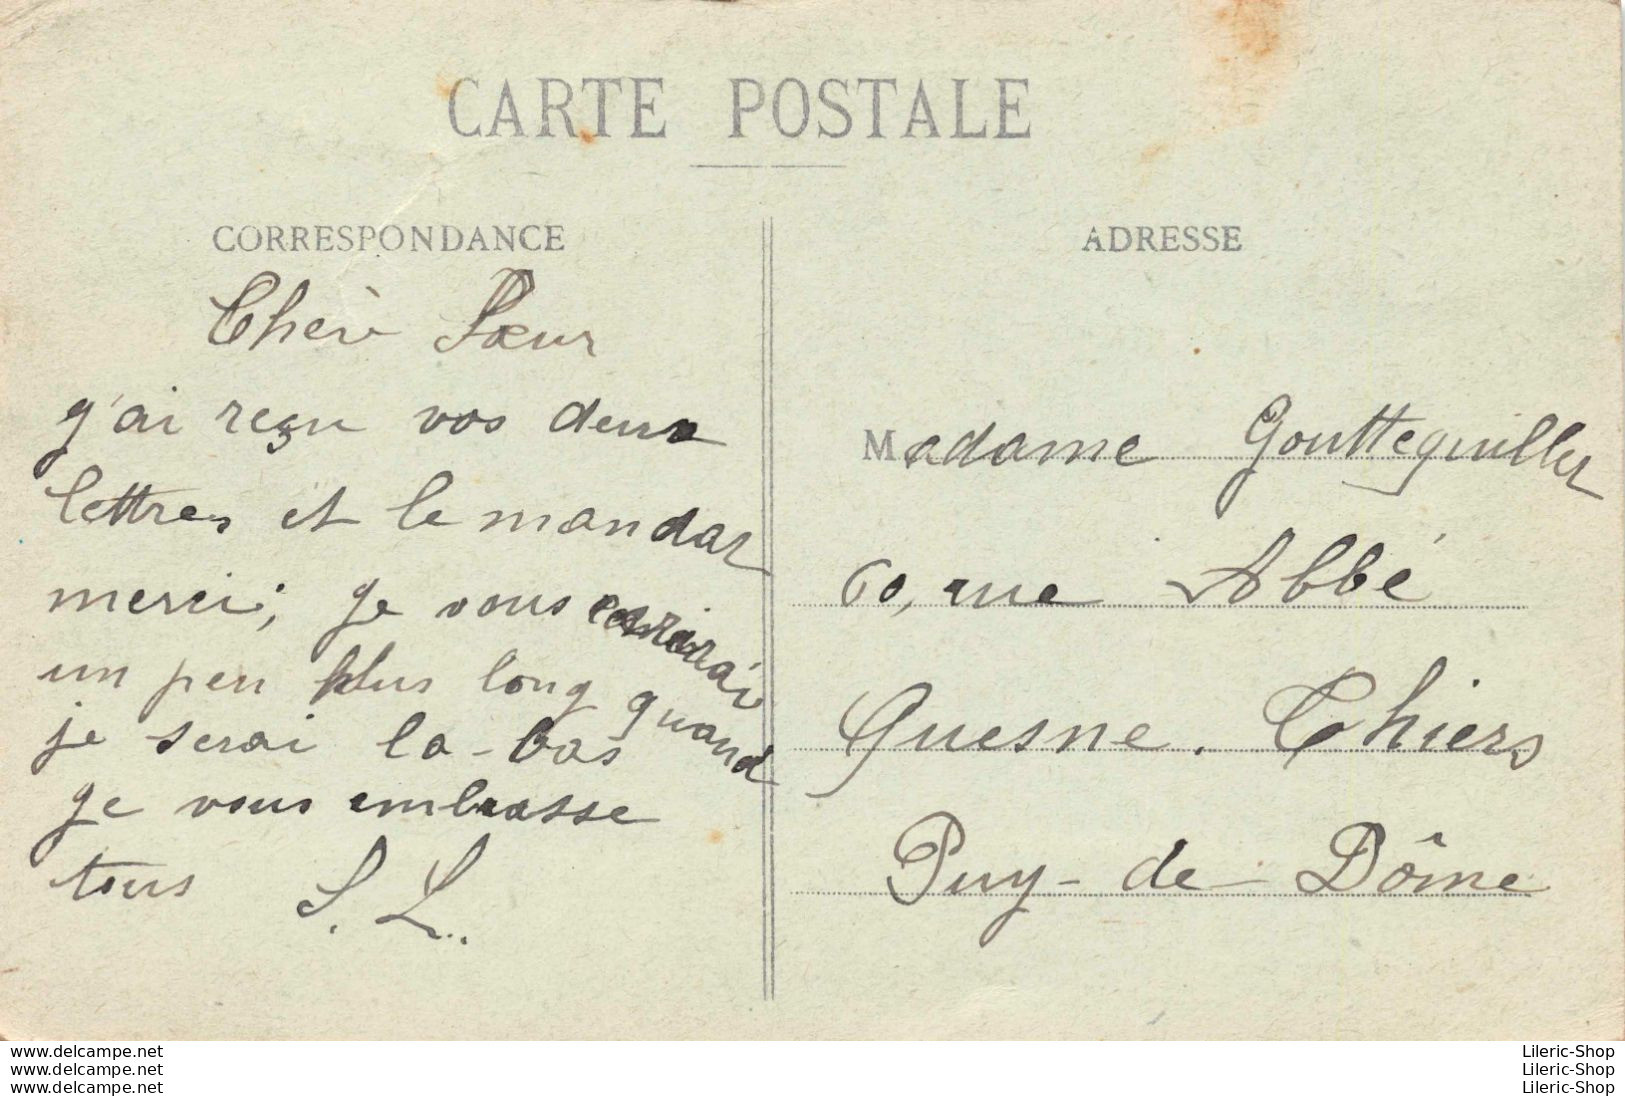 CARTE POSTALE
CORRESPONDANCE
Chère Sœur
j'ai reçu vos deux
lettres et le mandat
merci; je vous
un peu plus long quand
je serai la-bas
je vous embrasse
tous S. L.
ADRESSE
Madame Goutteguiller
60, rue Abbé
Guesne. Thiers
Puy-de-Dôme
www.delcampe.net
www.delcampe.net
www.delcampe.net
Lileric-Shop
Lileric-Shop
Lileric-Shop